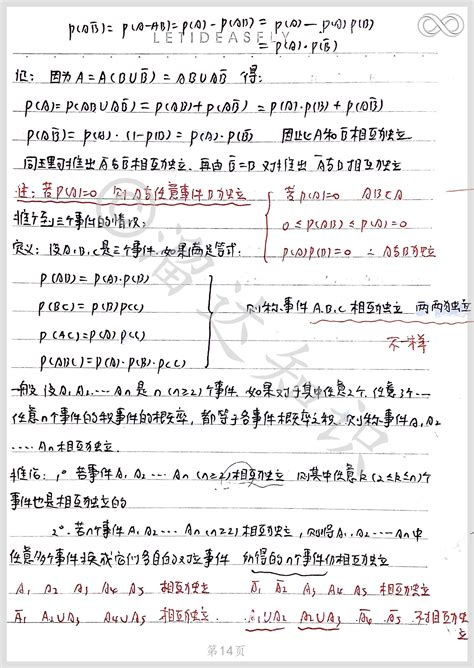 P(AB̄) = P(A-AB) = P(A) - P(AB) = P(A) - P(A)P(B)
LETIDEASFLY
= P(A)·P(B̄)
证: 因为 A = A(B∪B̄) = AB∪AB̄ 得:
P(A) = P(AB∪AB̄) = P(AB)+P(AB̄) = P(A)·P(B) + P(AB̄)
P(AB̄) = P(A)·(1-P(B)) = P(A)·P(B̄) 因此A和B̄相互独立
同理可推出 Ā与B̄相互独立. 再由 B̄̄=B 又推出 Ā与B相互独立
注: 若P(A)=0 则A与任意事件B独立
若P(A)=0 AB⊂A
0≤P(AB)≤P(A)=0
P(A)P(B)=0 ∴ A与B独立
推广到三个事件的情况:
定义: 设A.B.C是三个事件. 如果满足等式:
P(AB) = P(A)·P(B)
P(BC) = P(B)P(C)
P(AC) = P(A)·P(C)
P(ABC) = P(A)·P(B)·P(C)
则称事件A.B.C 相互独立 两两独立
不一样
一般 设A₁, A₂…… An是n(n≥2)个事件. 如果对于其中任意2个. 任意3个…
任意n个事件的积事件的概率. 都等于各事件概率之积. 则称事件A₁, A₂
…… An相互独立.
推论: 1° 若事件A₁ A₂ …… An (n≥2)相互独立 则其中任意k(2≤k≤n)个
事件也是相互独立的
2°. 若n个事件A₁, A₂…… An(n≥2)相互独立, 则将A₁, A₂…… An中
任意多个事件换成它们各自的对立事件 所得的n个事件仍相互独立
A₁ A₂ A₃ A₄ A₅ 相互独立 Ā₁ Ā₂ A₃ A₄ A₅ 相互独立
Ā₁ A₂∪A₃ A₄∪A₅ 相互独立. A₁∪A₂ A₂∪A₃ Ā₄ Ā₅ 不相互独立
溜达知识
第14页